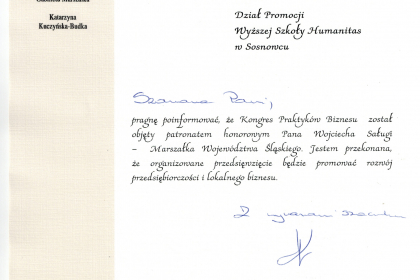 Katarzyna
Kuczyńska-Budka
Dział Promocji
Wyższej Szkoły Humanitas
w Sosnowcu
Szanowna Pani,
pragnę poinformować, że Kongres Praktyków Biznesu został
objęty patronatem honorowym Pana Wojciecha Saługi
– Marszałka Województwa Śląskiego. Jestem przekonana,
że organizowane przedsięwzięcie będzie promować rozwój
przedsiębiorczości i lokalnego biznesu.
Z wyrazami szacunku